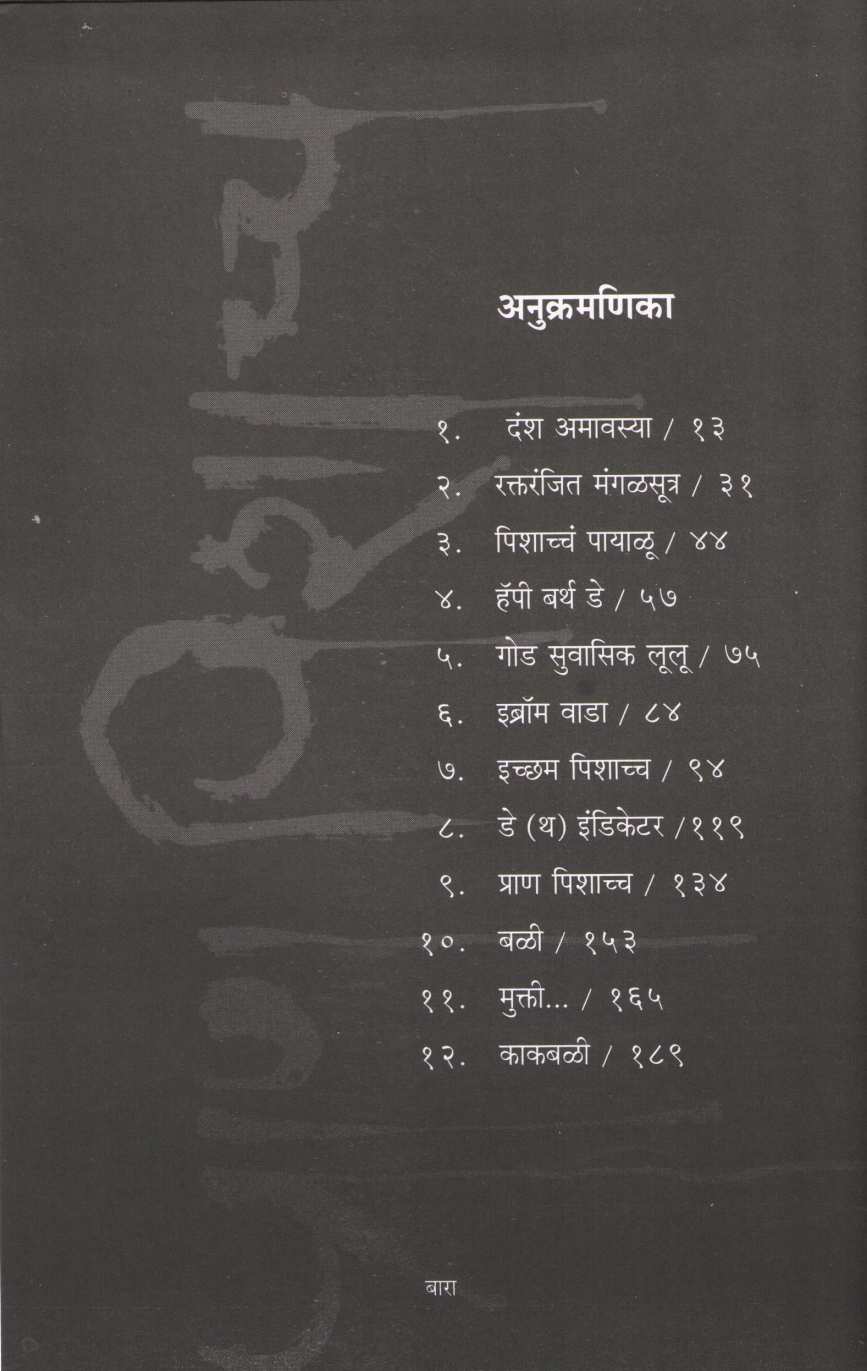 अनुक्रमणिका
१. दंश अमावस्या / १३
२. रक्तरंजित मंगळसूत्र / ३१
३. पिशाच्चं पायाळू / ४४
४. हॅपी बर्थ डे / ५७
५. गोड सुवासिक लूलू / ७५
६. इब्रॉम वाडा / ८४
७. इच्छम पिशाच्च / ९४
८. डे (थ) इंडिकेटर /११९
९. प्राण पिशाच्च / १३४
१०. बळी / १५३
११. मुक्ती... / १६५
१२. काकबळी / १८९
बारा